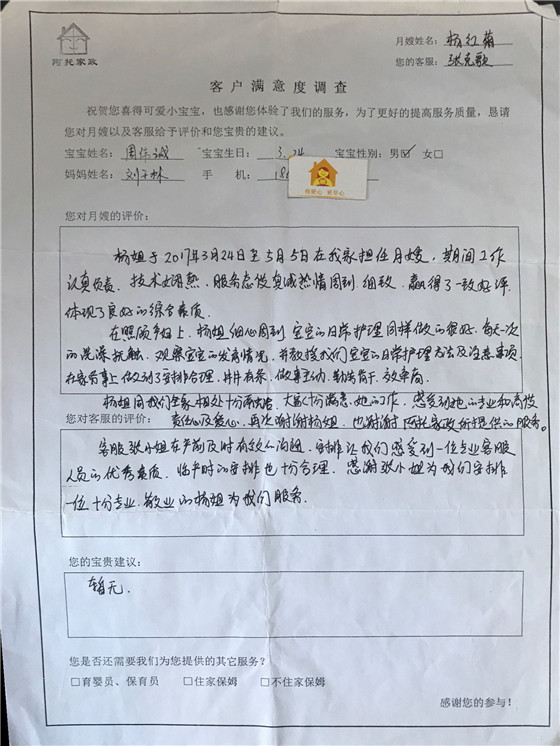 阿托家政
月嫂姓名：杨红菊
您的客服：张克歌
客户满意度调查
祝贺您喜得可爱小宝宝，也感谢您体验了我们的服务，为了更好的提高服务质量，恳请
您对月嫂以及客服给予评价和您宝贵的建议。
宝宝姓名：周 诚 宝宝生日：3.24 宝宝性别：男☑ 女□
妈妈姓名：刘 林 手 机：18
用爱心 更尽心
您对月嫂的评价：
杨姐于2017年3月24日至5月5日在我家担任月嫂，期间工作
认真负责、技术娴熟、服务态度真诚热情周到、细致，赢得了一致好评，
体现了良好的综合素质。
在照顾方面上，杨姐细心周到，宝宝的日常护理同样做的很好，每天一次
的洗澡抚触，观察宝宝的发育情况，并教授我们宝宝的日常护理方法及注意事项，
在家务事上做到了安排合理，井井有条，做事主动、勤劳肯干、效率高。
杨姐同我们全家相处十分融洽，大家十分满意她的工作，感受到她的专业和高度
您对客服的评价：责任心及爱心，再次谢谢杨姐，也谢谢阿托家政所提供的服务。
客服张小姐在产前及时有效的沟通，安排让我们感受到一位专业客服
人员的优秀素质，临产时的安排也十分合理，感谢张小姐为我们安排
一位十分专业、敬业的杨姐为我们服务。
您的宝贵建议：
暂无.
您是否还需要我们为您提供的其它服务？
□育婴员、保育员 □住家保姆 □不住家保姆
感谢您的参与！